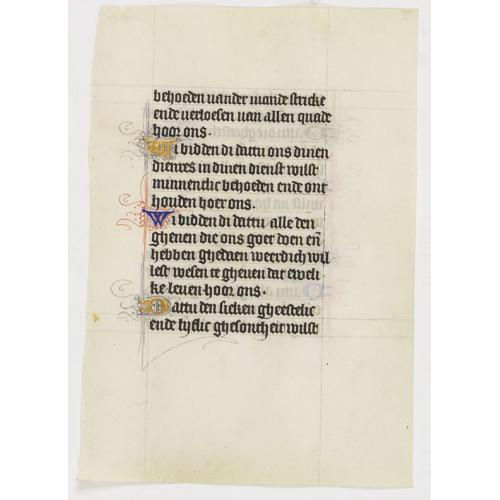 behoeden vander viande stricke
ende verloesen van allen quade
hoor ons.
Wi bidden di dattu ons dinen
dienres in dinen dienst wilst
minnentlic behoeden ende ont
houden hoer ons.
Wi bidden di dattu alle den
ghenen die ons goet doen en̄
hebben ghedaen weerdich wil
leste wesen te gheuen dat eweli
ke leuen hoor ons.
Dattu den siecken gheestelic
ende lyflic ghesontheit wilst